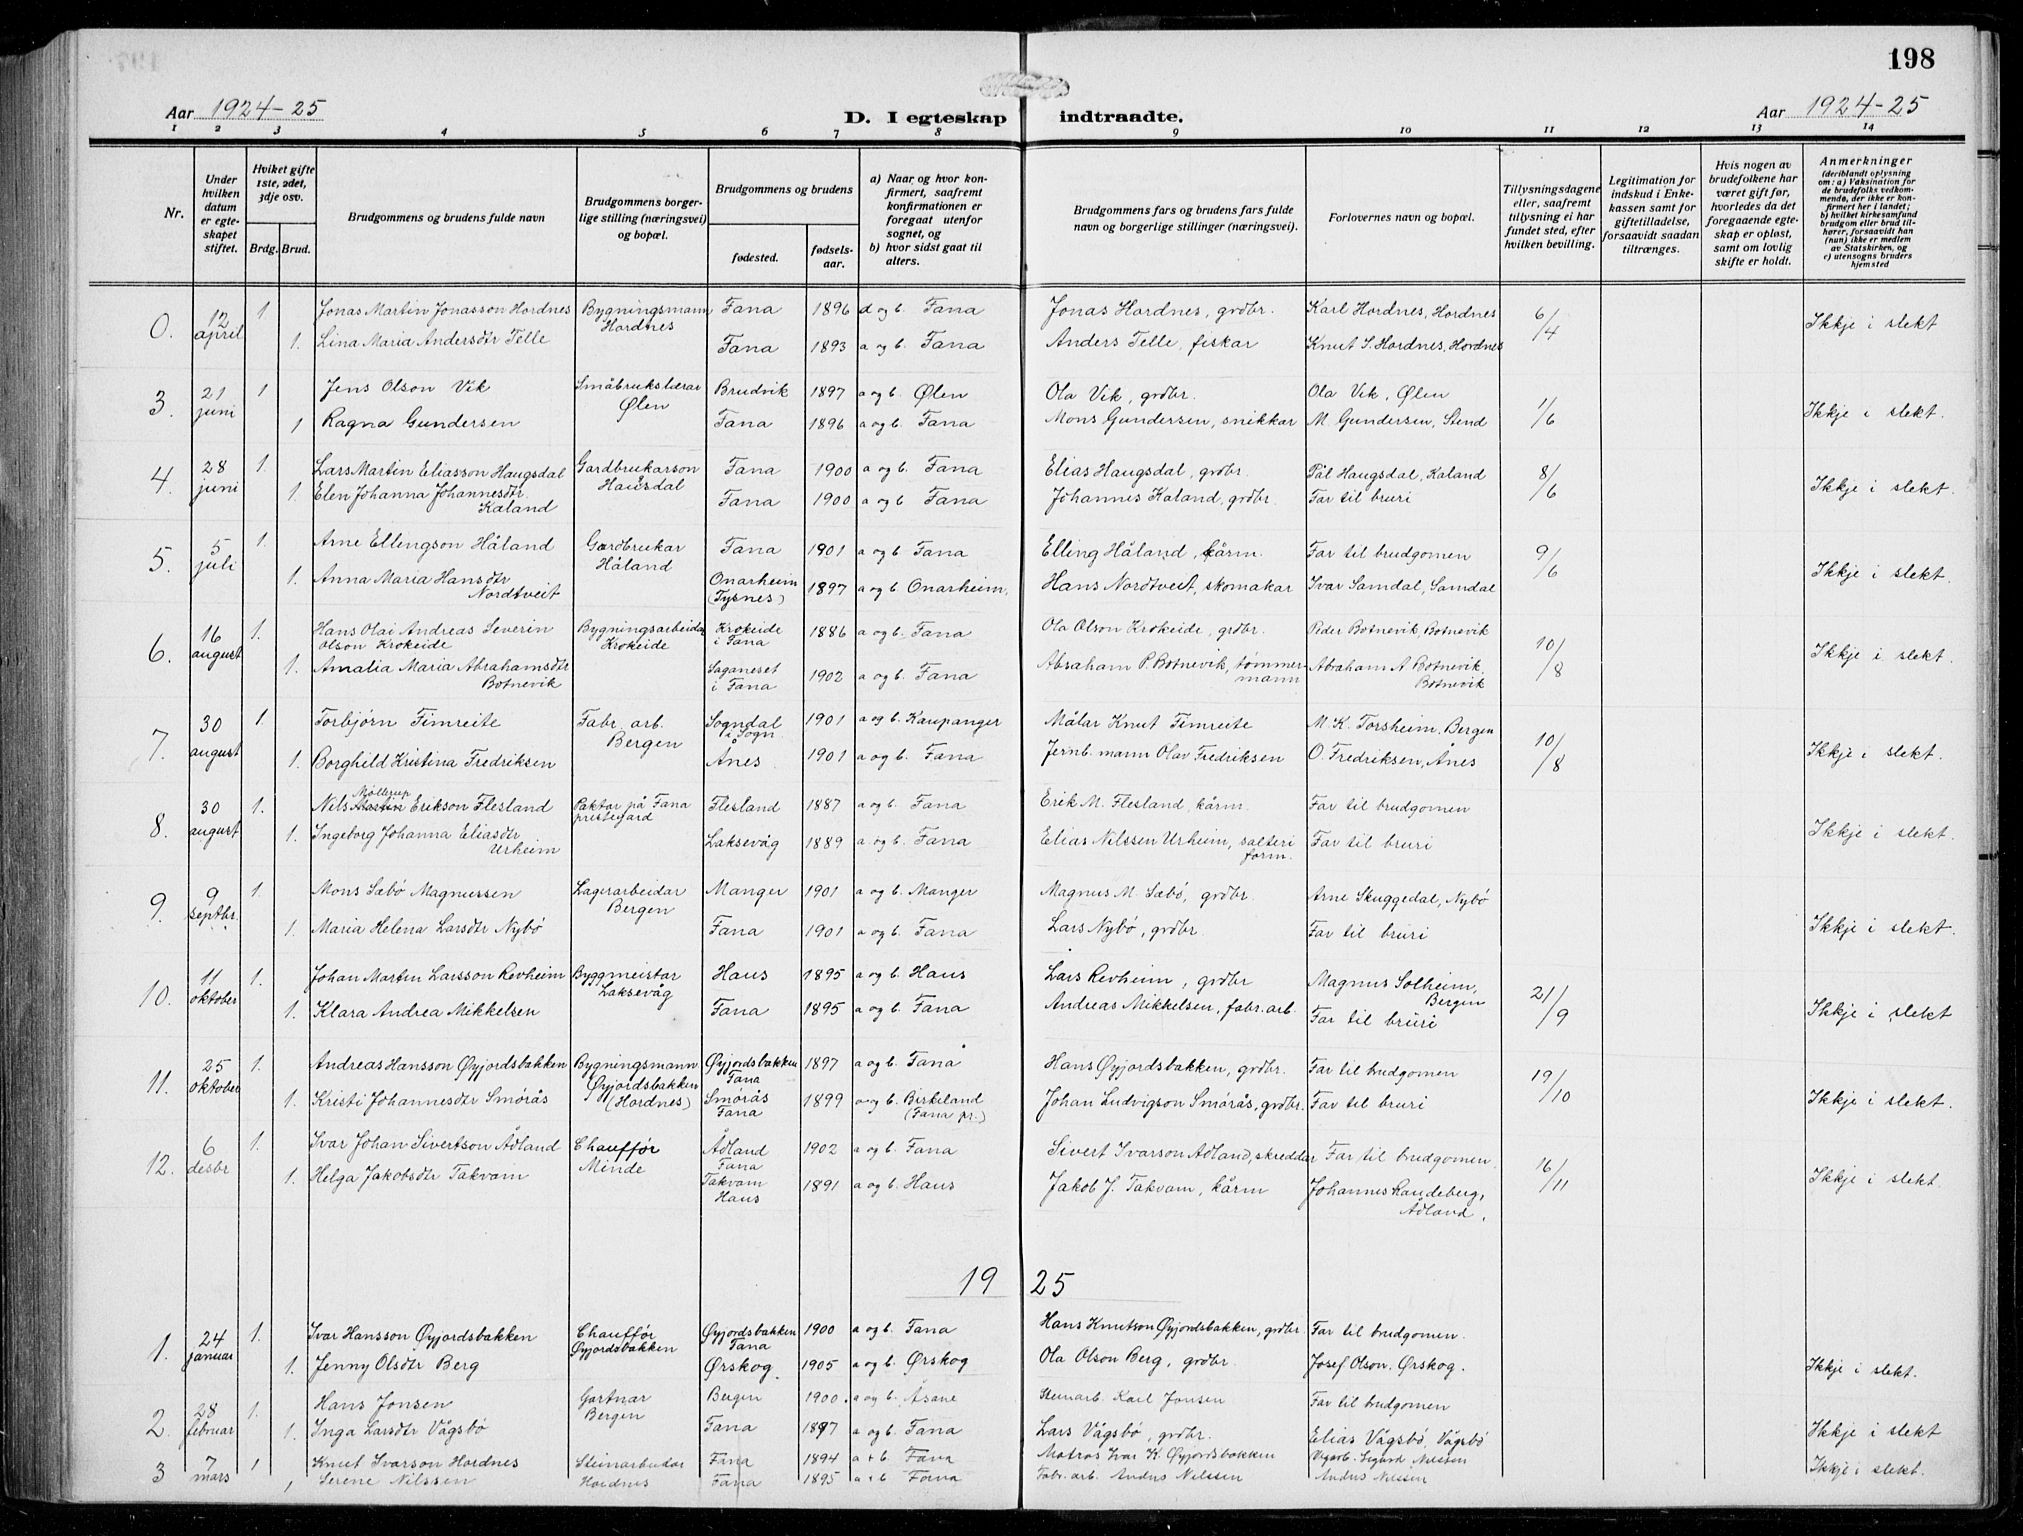 198
Aar 1924-25
D. I egteskap indtraadte.
Aar 1924-25
1 2 3 4 5 6 7 8 9 10 11 12 13 14
Nr.
Under hvilken datum er egteskapet stiftet.
Hviket gifte 1ste, 2det, 3dje osv.
Brdg. Brud.
Brudgommens og brudens fulde navn
Brudgommens borgerlige stilling (næringsvei) og bopæl.
Brudgommens og brudens
fødested. fødselsaar.
a) Naar og hvor konfirmert, saafremt konfirmationen er foregaat utenfor sognet, og
b) hvor sidst gaat til alters.
Brudgommens fars og brudens fars fulde navn og borgerlige stillinger (næringsvei).
Forlovernes navn og bopæl.
Tillysningsdagene eller, saafremt tillysning ei har fundet sted, efter hvilken bevilling.
Legitimation for indskud i Enkekassen samt for giftetilladelse, forsaavidt saadan tiltrænges.
Hvis nogen av brudefolkene har været gift før, hvorledes da det foregaaende egteskap er opløst, samt om lovlig skifte er holdt.
Anmerkninger
(deriblandt oplysning om: a) Vaksination for de brudefolks vedkommende, der ikke er konfirmert her i landet; b) hvilket kirkesamfund brudgom eller brud tilhører, forsaavidt han (hun) ikke er medlem av Statskirken, og c) utensogns bruders hjemsted
0. 12 april 1 Jonas Martin Jonasson Hordnes Bygningsmann Hordnes Fana 1896 a og b. Fana Jonas Hordnes, grdbr. Karl Hordnes, Hordnes 6/4 Ikkje i slekt
1. Lina Maria Andersdtr Telle Fana 1893 a og b. Fana Anders Telle, fiskar Knut S. Hordnes, Hordnes
3. 21 juni 1 Jens Olson Vik Småbrukslærar Ølen Brudvik 1897 a og b. Ølen Ola Vik, grdbr. Ola Vik, Ølen 1/6 Ikkje i slekt.
1 Ragna Gundersen Fana 1896 a og b. Fana Mons Gundersen, snikkar M. Gundersen, Stend
4. 28 juni 1. Lars Martin Eliasson Haugsdal Gardbrukarson Haugsdal Fana 1900 a og b. Fana Elias Haugsdal, grdbr. Pål Haugsdal, Kaland 8/6 Ikkje i slekt.
1. Elen Johanna Johannesdtr. Kaland Fana 1900 a og b. Fana Johannes Kaland, grdbr. Far til bruri
5. 5 juli 1. Arne Ellingson Håland Gardbrukar Håland Fana 1901 a og b. Fana Elling Håland, kårm. Far til brudgomen 9/6 Ikkje i slekt.
1. Anna Maria Hansdtr Nordtveit Onarheim (Tysnes) 1897 a og b. Onarheim. Hans Nordtveit, skomakar Ivar Samdal, Samdal
6. 16 august 1. Hans Olai Andreas Severin Olson Krokeide Bygningsarbeidar Krokeide Krokeide i Fana 1886 a og b. Fana Ola Olson Krokeide, grdbr. Peder Botnevik Botnevik 10/8 Ikkje i slekt.
1. Amalia Maria Abrahamsdtr Botnevik Saganeset i Fana 1902 a og b. Fana Abraham P. Botnevik, tømmermann Abraham A Botnevik, Botnevik
7. 30 august 1. Torbjørn Timreite Fabr. arb. Bergen Sogndal i Sogn 1901 a og b. Kaupanger Målar Knut Timreite M. K. Torsheim, Bergen 10/8 Ikkje i slekt.
1. Borghild Kristina Fredriksen Ånes 1901 a og b. Fana Jernb. mann Olav Fredriksen O. Fredriksen, Ånes
8. 30 august 1. Nils Møllerup Martin Erikson Flesland Paktar på Fana prestegard Flesland 1887 a og b. Fana Erik M. Flesland, kårm. Far til brudgomen Ikkje i slekt.
1. Ingeborg Johanna Eliasdtr Urheim Laksevåg 1889 a og b. Fana Elias Nilssen Urheim, salteri form. Far til bruri
9. 9 septbr. 1. Mons Sæbö Magnussen Lagerarbeidar Bergen Manger 1901 a og b. Manger Magnus M. Sæbö, grdbr. Arne Skuggedal, Nybö Ikkje i slekt.
1. Maria Helena Larsdtr Nybö Fana 1901 a og b. Fana Lars Nybö, grdbr. Far til bruri
10. 11 oktober 1. Johan Martin Larsson Revheim Byggmeistar Laksevåg Haus 1895 a og b. Haus Lars Revheim, grdbr Magnus Solheim, Bergen 21/9 Ikkje i slekt
1. Klara Andrea Mikkelsen Fana 1895 a og b. Fana Andreas Mikkelsen, fabr. arb. Far til bruri
11. 25 oktober 1. Andreas Hansson Øyjordsbakken Bygningsmann Øyjordsbakken (Hordnes) Øyjordsbakken Fana 1897 a og b. Fana Hans Øyjordsbakken, grdbr. Far til brudgomen 19/10 Ikkje i slekt.
1. Kristi Johannesdtr Smörås Smörås Fana 1899 a og b. Birkeland (Fana pr.) Johan Ludvigson Smörås, grdbr. Far til bruri
12. 6 desbr 1. Ivar Johan Sivertson Ådland Chaufför Minde Ådland Fana 1902 a og b. Fana Sivert Ivarson Ådland, skreddar Far til brudgomen. 16/11 Ikkje i slekt.
1. Helga Jakobsdtr Takvam Takvam Haus 1891 a og b. Haus Jakob J. Takvam, kårm Johannes Randeberg, Ådland.
1925
1. 24 januar 1. Ivar Hansson Øyjordsbakken Chaufför Øyjordsbakken Øyjordsbakken Fana 1900 a og b. Fana Hans Knutson Øyjordsbakken, grdbr. Far til brudgomen. Ikkje i slekt.
1. Jenny Olsdtr Berg Ørskog 1905 a og b. Ørskog Ola Olson Berg, grdbr. Josef Olson, Ørskog.
2. 28 februar 1. Hans Jonsen Gartnar Bergen Bergen 1900. a og b. Åsane Steinarb. Karl Jonsen Far til brudgomen Ikkje i slekt
1. Inga Larsdtr Vågsbø Fana 1897 a og b. Fana Lars Vågsbø, grdbr. Elias Vågsbø, Vågsbø
3 7 mars 1 Knut Ivarson Hordnes Steinarbeidar Hordnes Fana 1894 a + b Fana Matros Ivar K. Øyjordsbakken Sigurd Nilsen Ikkje i slekt.
1 Serene Nilssen Fana 1895 a + b Fana Fabr. arb. Anders Nilssen Anders Nilssen